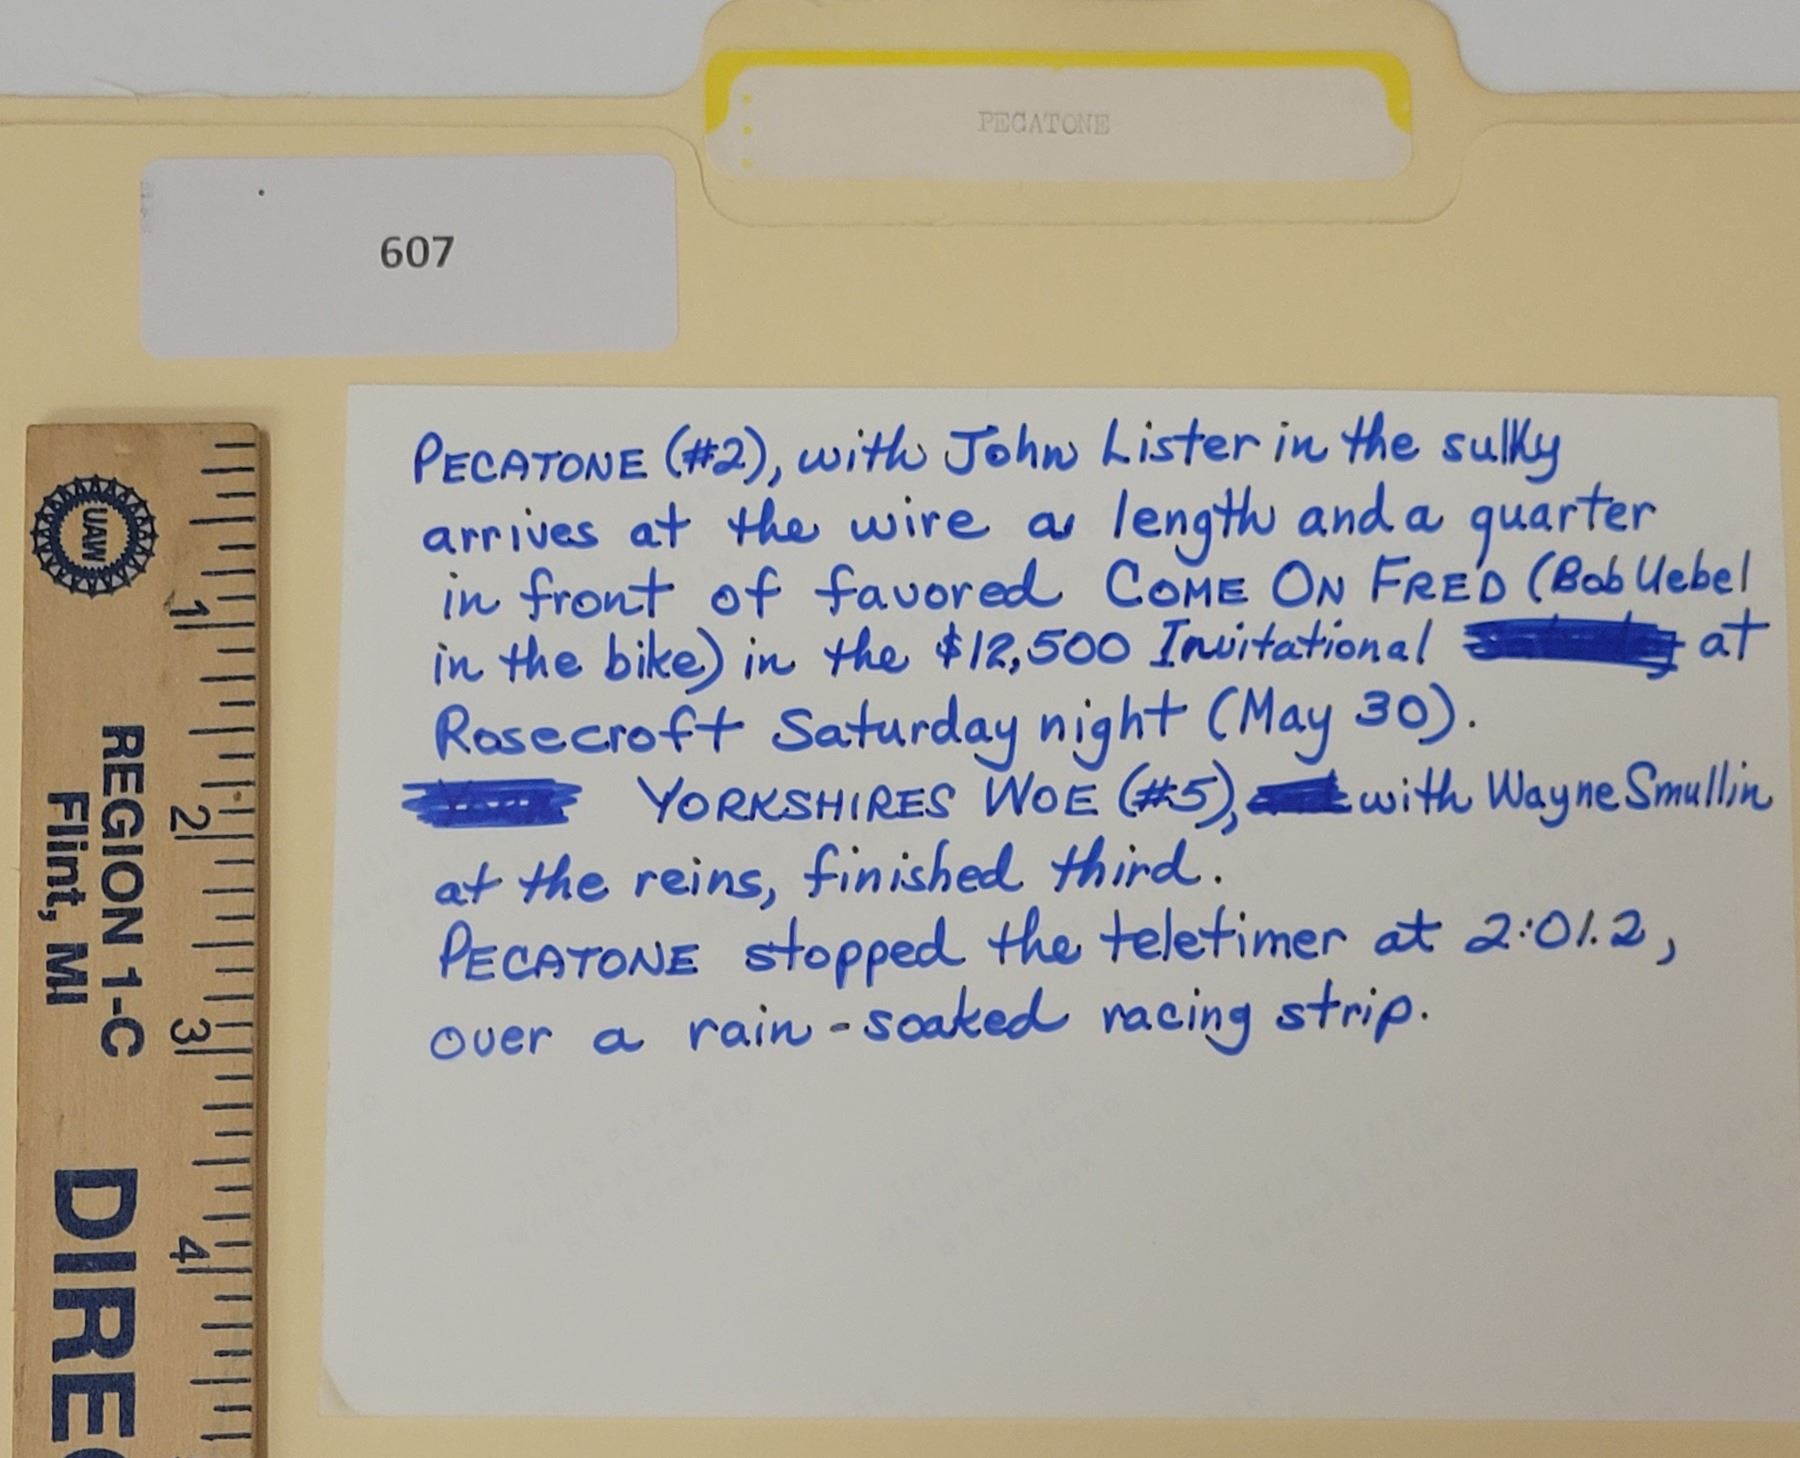 PECATONE
607
PECATONE (#2), with John Lister in the sulky
arrives at the wire a length and a quarter
in front of favored COME ON FRED (Bob Uebel
in the bike) in the $12,500 Invitational at
Rosecroft Saturday night (May 30).
YORKSHIRES WOE (#5), with Wayne Smullin
at the reins, finished third.
PECATONE stopped the teletimer at 2:01.2,
over a rain-soaked racing strip.
UAW
REGION 1-C
Flint, MI
DIRE
1
2
3
4